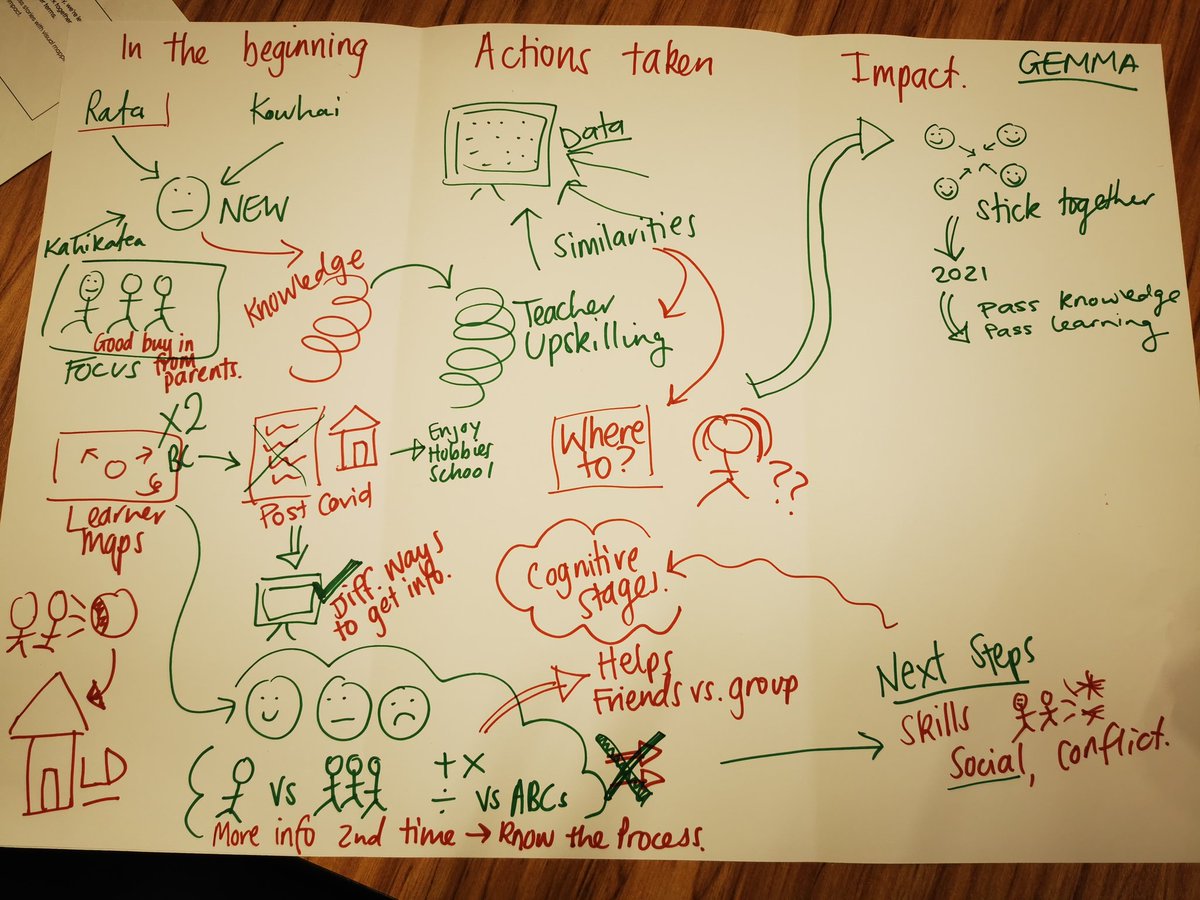 In the beginning
Rata
Kowhai
NEW
Kahikatea
Knowledge
Good buy in
from
parents.
FOCUS
x2
BC
Learner
Maps
Post Covid
Enjoy
Hobbies
School
Diff. ways
to get info.
LD
vs
+ x
÷ vs ABCs
More info 2nd time → Know the Process.
Actions taken
Data
Similarities
Teacher
Upskilling
Where
to?
??
Cognitive
Stages.
Helps
Friends vs. group
Impact.
GEMMA
Stick together
2021
Pass knowledge
Pass learning
Next Steps
Skills
Social, Conflict.